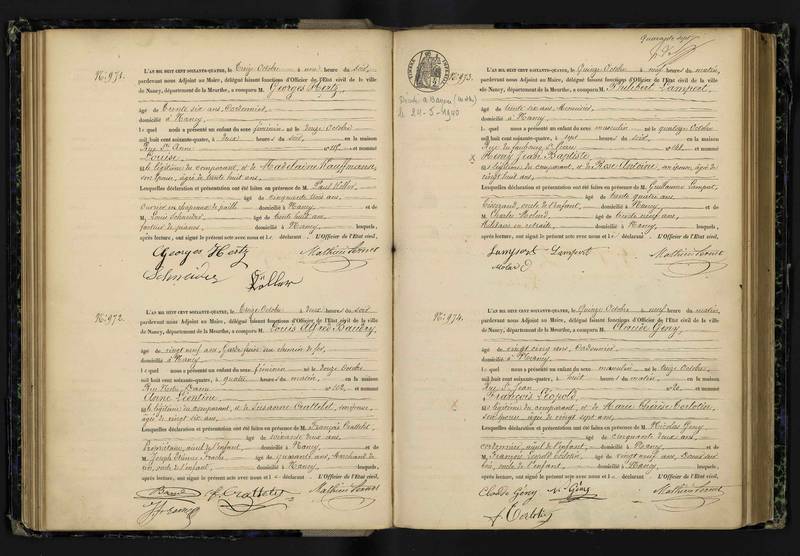 N: 971.
L'AN MIL HUIT CENT SOIXANTE-QUATRE, le Treize Octobre à une heure du soir,
pardevant nous Adjoint au Maire, délégué faisant fonctions d'Officier de l'État civil de la ville
de Nancy, département de la Meurthe, a comparu M. Georges Hertz,
âgé de trente six ans, Cordonnier,
domicilié à Nancy
lequel nous a présenté un enfant du sexe féminin né le douze Octobre
mil huit cent soixante-quatre, à heures du soir, en la maison
Rue St et nommé
Louise,
fille légitime du comparant, & de Madelaine Kauffmann,
son épouse, âgée de trente huit ans.
Lesquelles déclaration et présentation ont été faites en présence de M. Paul
âgé de cinquante trois ans,
Ouvrier en chapeaux de paille domicilié à Nancy et de
M. Louis Schneider, âgé de trente huit ans,
facteur de pianos, domicilié à Nancy lesquels,
après lecture, ont signé le présent acte avec nous et le déclarant. L'Officier de l'État civil,
Georges Hertz
Schneider
N: 972.
L'AN MIL HUIT CENT SOIXANTE-QUATRE, le Treize Octobre à deux heures du soir
pardevant nous Adjoint au Maire, délégué faisant fonctions d'Officier de l'État civil de la ville
de Nancy, département de la Meurthe, a comparu M. Louis Alfred
âgé de vingt neuf ans, chemin de fer,
domicilié à Nancy
lequel nous a présenté un enfant du sexe féminin né le douze Octobre
mil huit cent soixante-quatre, à quatre heures du matin, en la maison
Rue et nommé
Anne Léontine,
fille légitime du comparant, & de Susanne Crattelet, son épouse,
âgée de vingt six ans.
Lesquelles déclaration et présentation ont été faites en présence de M. François Crattelet,
âgé de soixante deux ans,
Propriétaire, aïeul de l'enfant, domicilié à Nancy et de
M. Joseph Étienne âgé de quarante ans, Marchand de
oncle de l'enfant, domicilié à Nancy lesquels,
après lecture, ont signé le présent acte avec nous et le déclarant. L'Officier de l'État civil,
Crattelet
Quarante sept
N: 973.
Décédé à
le 24-5-1940
L'AN MIL HUIT CENT SOIXANTE-QUATRE, le Quinze Octobre à neuf heures du matin,
pardevant nous Adjoint au Maire, délégué faisant fonctions d'Officier de l'État civil de la ville
de Nancy, département de la Meurthe, a comparu M. Philibert Lampert,
âgé de trente six ans, Menuisier,
domicilié à Nancy
lequel nous a présenté un enfant du sexe masculin né le quatorze Octobre
mil huit cent soixante-quatre, à sept heures du soir, en la maison
Rue du faubourg St Pierre et nommé
Henry Jean Baptiste,
fils légitime du comparant, & de Rose Antoine, son épouse, âgée de
vingt huit ans.
Lesquelles déclaration et présentation ont été faites en présence de M. Guillaume Lampert,
âgé de trente quatre ans,
Tisserand, oncle de l'enfant, domicilié à Nancy et de
M. Charles Molard, âgé de trente neuf ans,
Militaire en retraite, domicilié à Nancy lesquels,
après lecture, ont signé le présent acte avec nous et le déclarant. L'Officier de l'État civil,
Lampert Lampert
N: 974.
L'AN MIL HUIT CENT SOIXANTE-QUATRE, le Quinze Octobre à neuf heures du matin,
pardevant nous Adjoint au Maire, délégué faisant fonctions d'Officier de l'État civil de la ville
de Nancy, département de la Meurthe, a comparu M. Claude Gény,
âgé de vingt cinq ans, Cordonnier,
domicilié à Nancy
lequel nous a présenté un enfant du sexe masculin né le treize Octobre
mil huit cent soixante-quatre, à huit heures du matin, en la maison
Rue St Jean et nommé
François Léopold,
fils légitime du comparant, & de Marie Thérèse
son épouse, âgée de vingt sept ans.
Lesquelles déclaration et présentation ont été faites en présence de M. Nicolas Gény,
âgé de cinquante deux ans,
cordonnier, aïeul de l'enfant, domicilié à Nancy et de
M. François âgé de vingt neuf ans,
oncle de l'enfant, domicilié à Nancy lesquels,
après lecture, ont signé le présent acte avec nous et le déclarant. L'Officier de l'État civil,
Claude Gény N. Gény